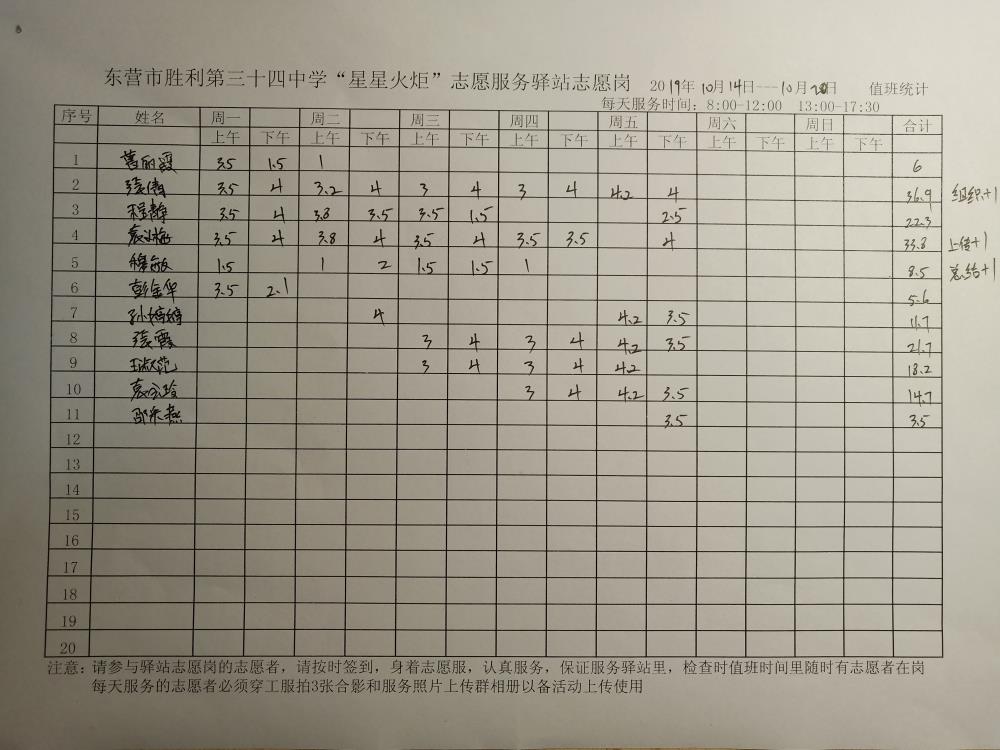 东营市胜利第三十四中学“星星火炬”志愿服务驿站志愿岗 2019年10月14日---10月20日 值班统计
每天服务时间：8:00-12:00 13:00-17:30
序号 姓名 周一 周二 周三 周四 周五 周六 周日 合计
上午 下午 上午 下午 上午 下午 上午 下午 上午 下午 上午 下午 上午 下午
1 3.5 1.5 1 6
2 张倩 3.5 4 3.2 4 3 4 3 4 4.2 4 36.9 组织+1
3 程静 3.5 4 3.8 3.5 3.5 1.5 2.5 22.3
4 3.5 4 3.8 4 3.5 4 3.5 3.5 4 33.8 上传+1
5 穆敏 1.5 1 2 1.5 1.5 1 8.5 总结+1
6 彭金华 3.5 2.1 5.6
7 孙婷婷 4 4.2 3.5 11.7
8 张霞 3 4 3 4 4.2 3.5 21.7
9 王淑范 3 4 3 4 4.2 18.2
10 3 4 4.2 3.5 14.7
11 3.5 3.5
12
13
14
15
16
17
18
19
20
注意：请参与驿站志愿岗的志愿者，请按时签到，身着志愿服，认真服务，保证服务驿站里，检查时值班时间里随时有志愿者在岗
每天服务的志愿者必须穿工服拍3张合影和服务照片上传群相册以备活动上传使用